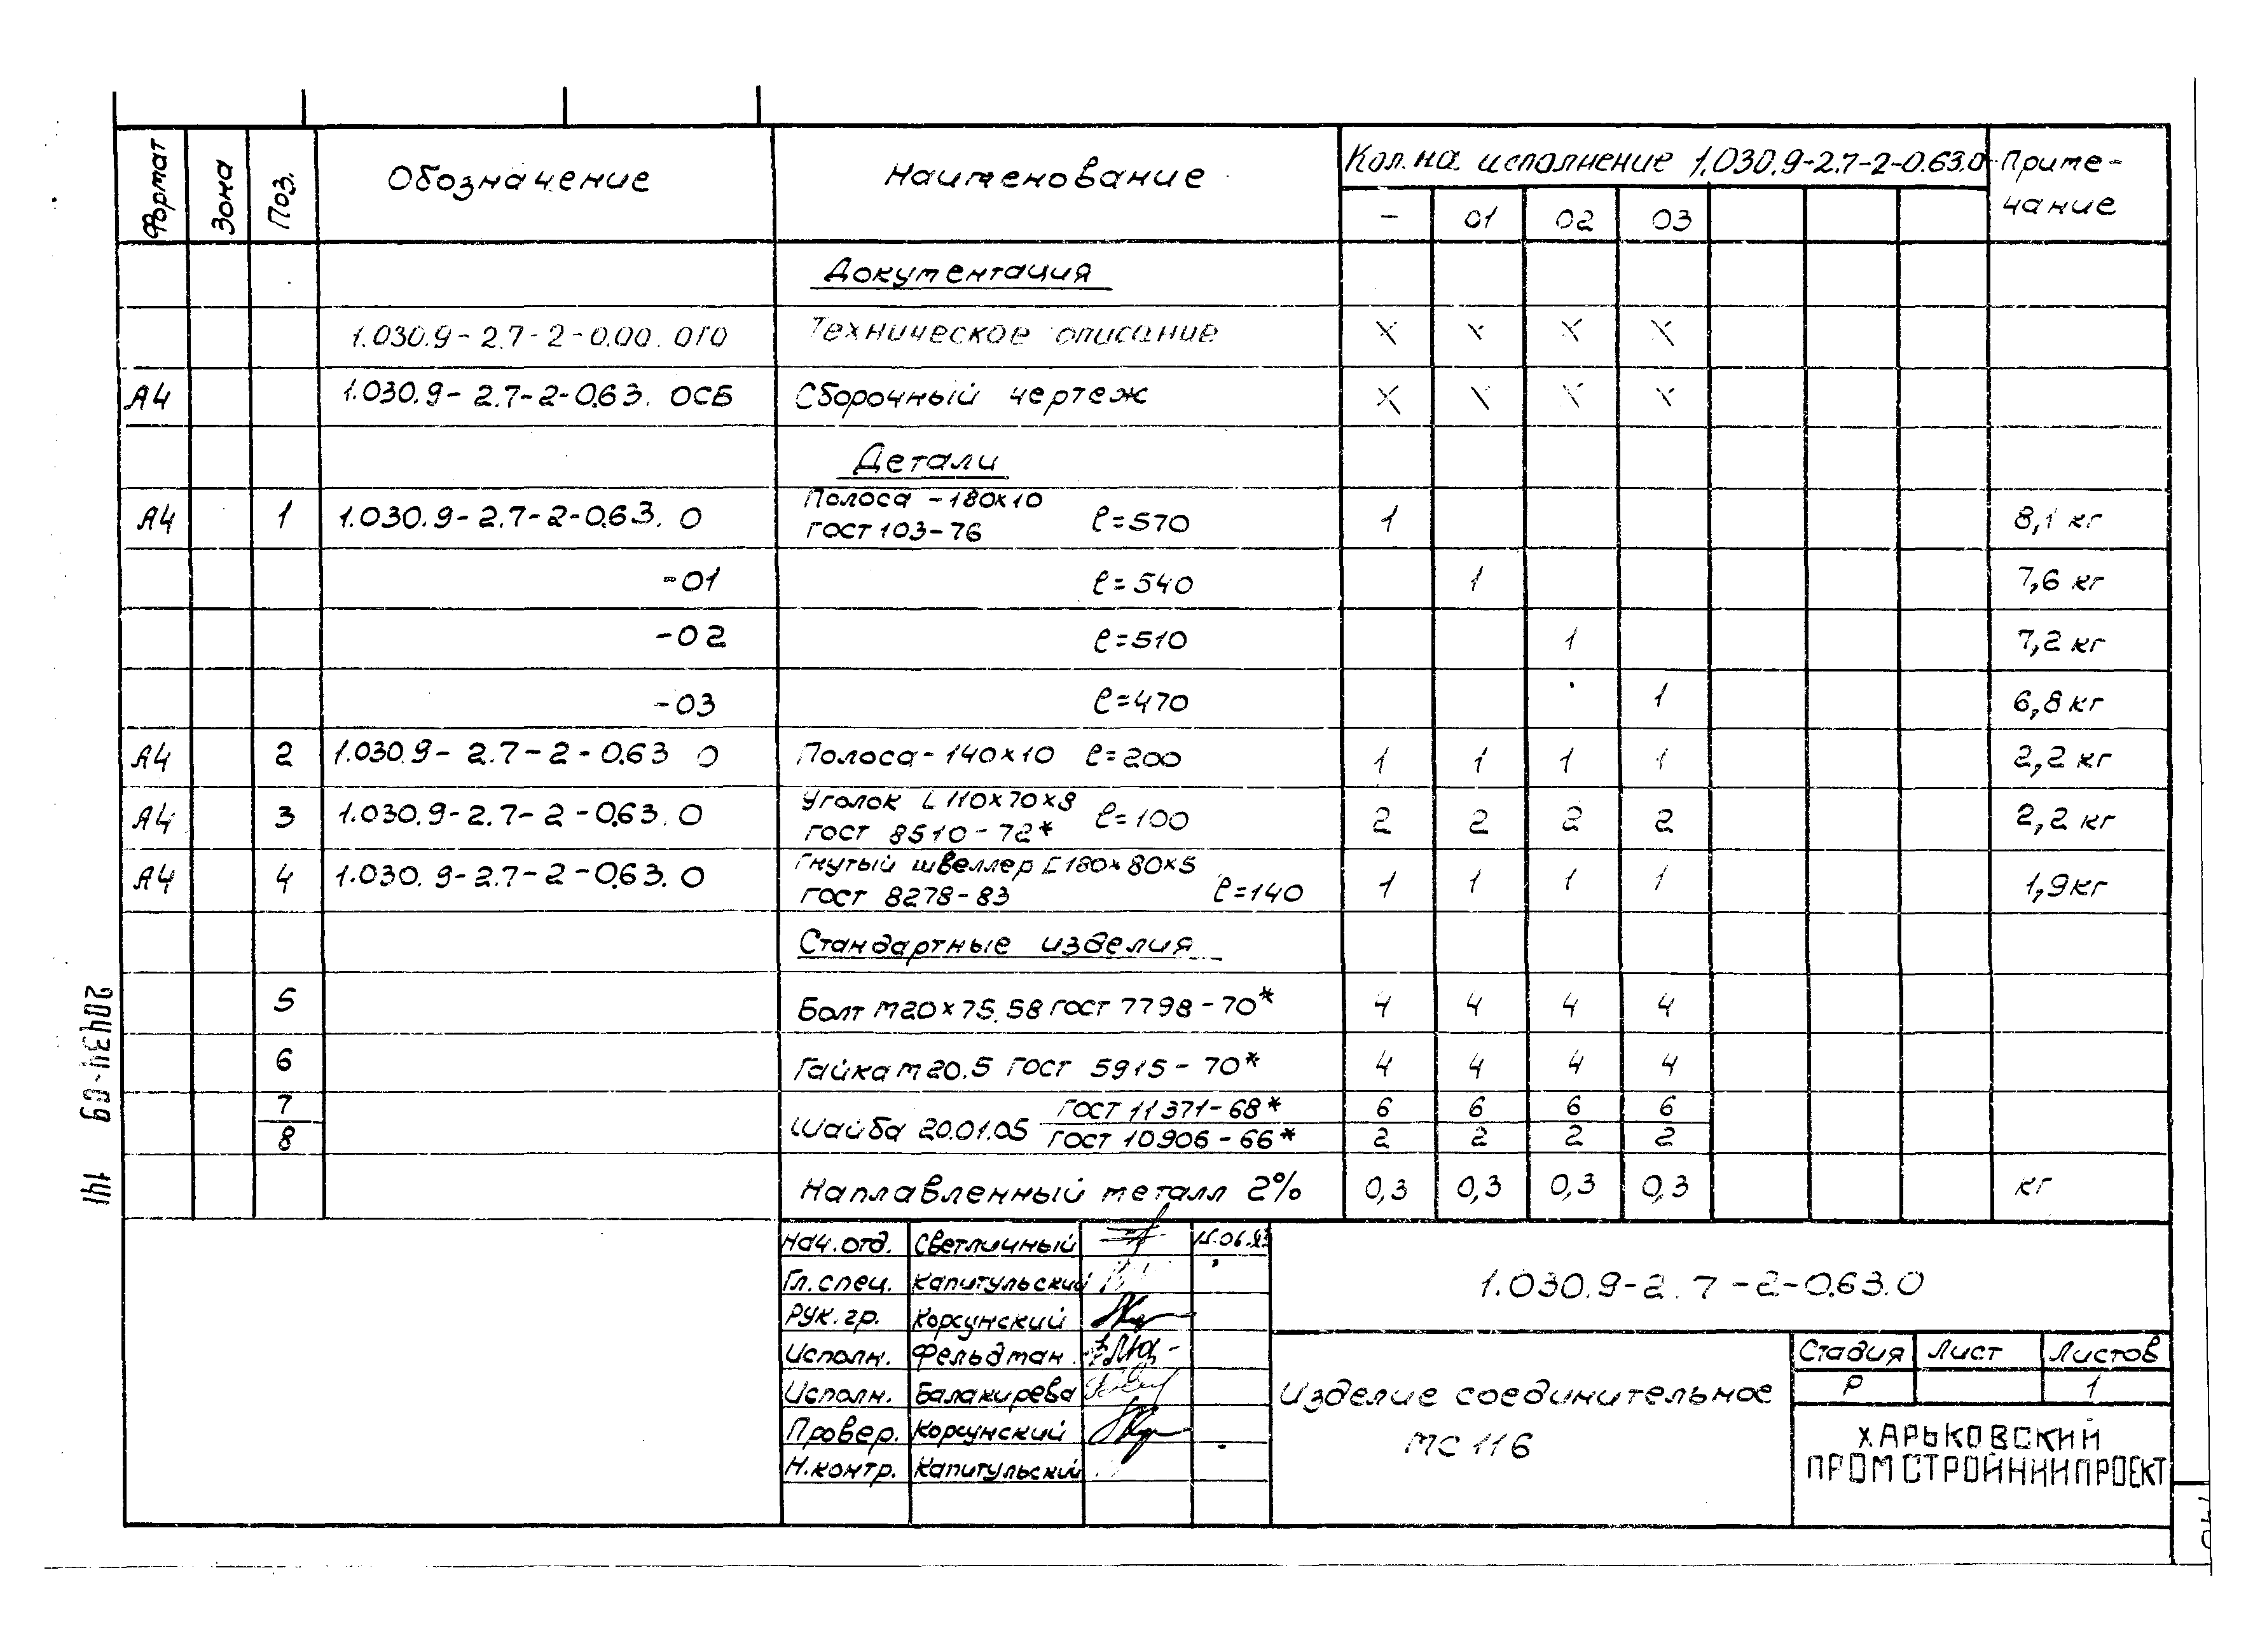 Формат Зона Поз. Обозначение Наименование Кол. на исполнение 1.030.9-2.7-2-0.63.0- Приме-
чание
- 01 02 03
Документация
1.030.9-2.7-2-0.00.0ТО Техническое описание X X X X
А4 1.030.9-2.7-2-0.63.0СБ Сборочный чертеж X X X X
Детали
А4 1 1.030.9-2.7-2-0.63.0 Полоса -180x10
ГОСТ 103-76 ℓ=570 1 8,1 кг
-01 ℓ=540 1 7,6 кг
-02 ℓ=510 1 7,2 кг
-03 ℓ=470 1 6,8 кг
А4 2 1.030.9-2.7-2-0.63 0 Полоса-140x10 ℓ=200 1 1 1 1 2,2 кг
А4 3 1.030.9-2.7-2-0.63.0 Уголок L110x70x8
ГОСТ 8510-72* ℓ=100 2 2 2 2 2,2 кг
А4 4 1.030.9-2.7-2-0.63.0 Гнутый швеллер [180x80x5
ГОСТ 8278-83 ℓ=140 1 1 1 1 1,9кг
Стандартные изделия
5 Болт М20x75.58 ГОСТ 7798-70* 4 4 4 4
6 Гайка М20.5 ГОСТ 5915-70* 4 4 4 4
7 ГОСТ 11371-68* 6 6 6 6
Шайба 20.01.05
8 ГОСТ 10906-66* 2 2 2 2
Наплавленный металл 2% 0,3 0,3 0,3 0,3 кг
20434-09 141
Нач.отд. Светличный 15.06.83
Гл.спец. Капитульский
Рук.гр. Корсунский
Исполн. Фельдман
Исполн. Балакирева
Провер. Корсунский
Н.контр. Капитульский
1.030.9-2.7-2-0.63.0
Изделие соединительное
МС 116
Стадия Лист Листов
Р 1
ХАРЬКОВСКИЙ
ПРОМСТРОЙНИИПРОЕКТ